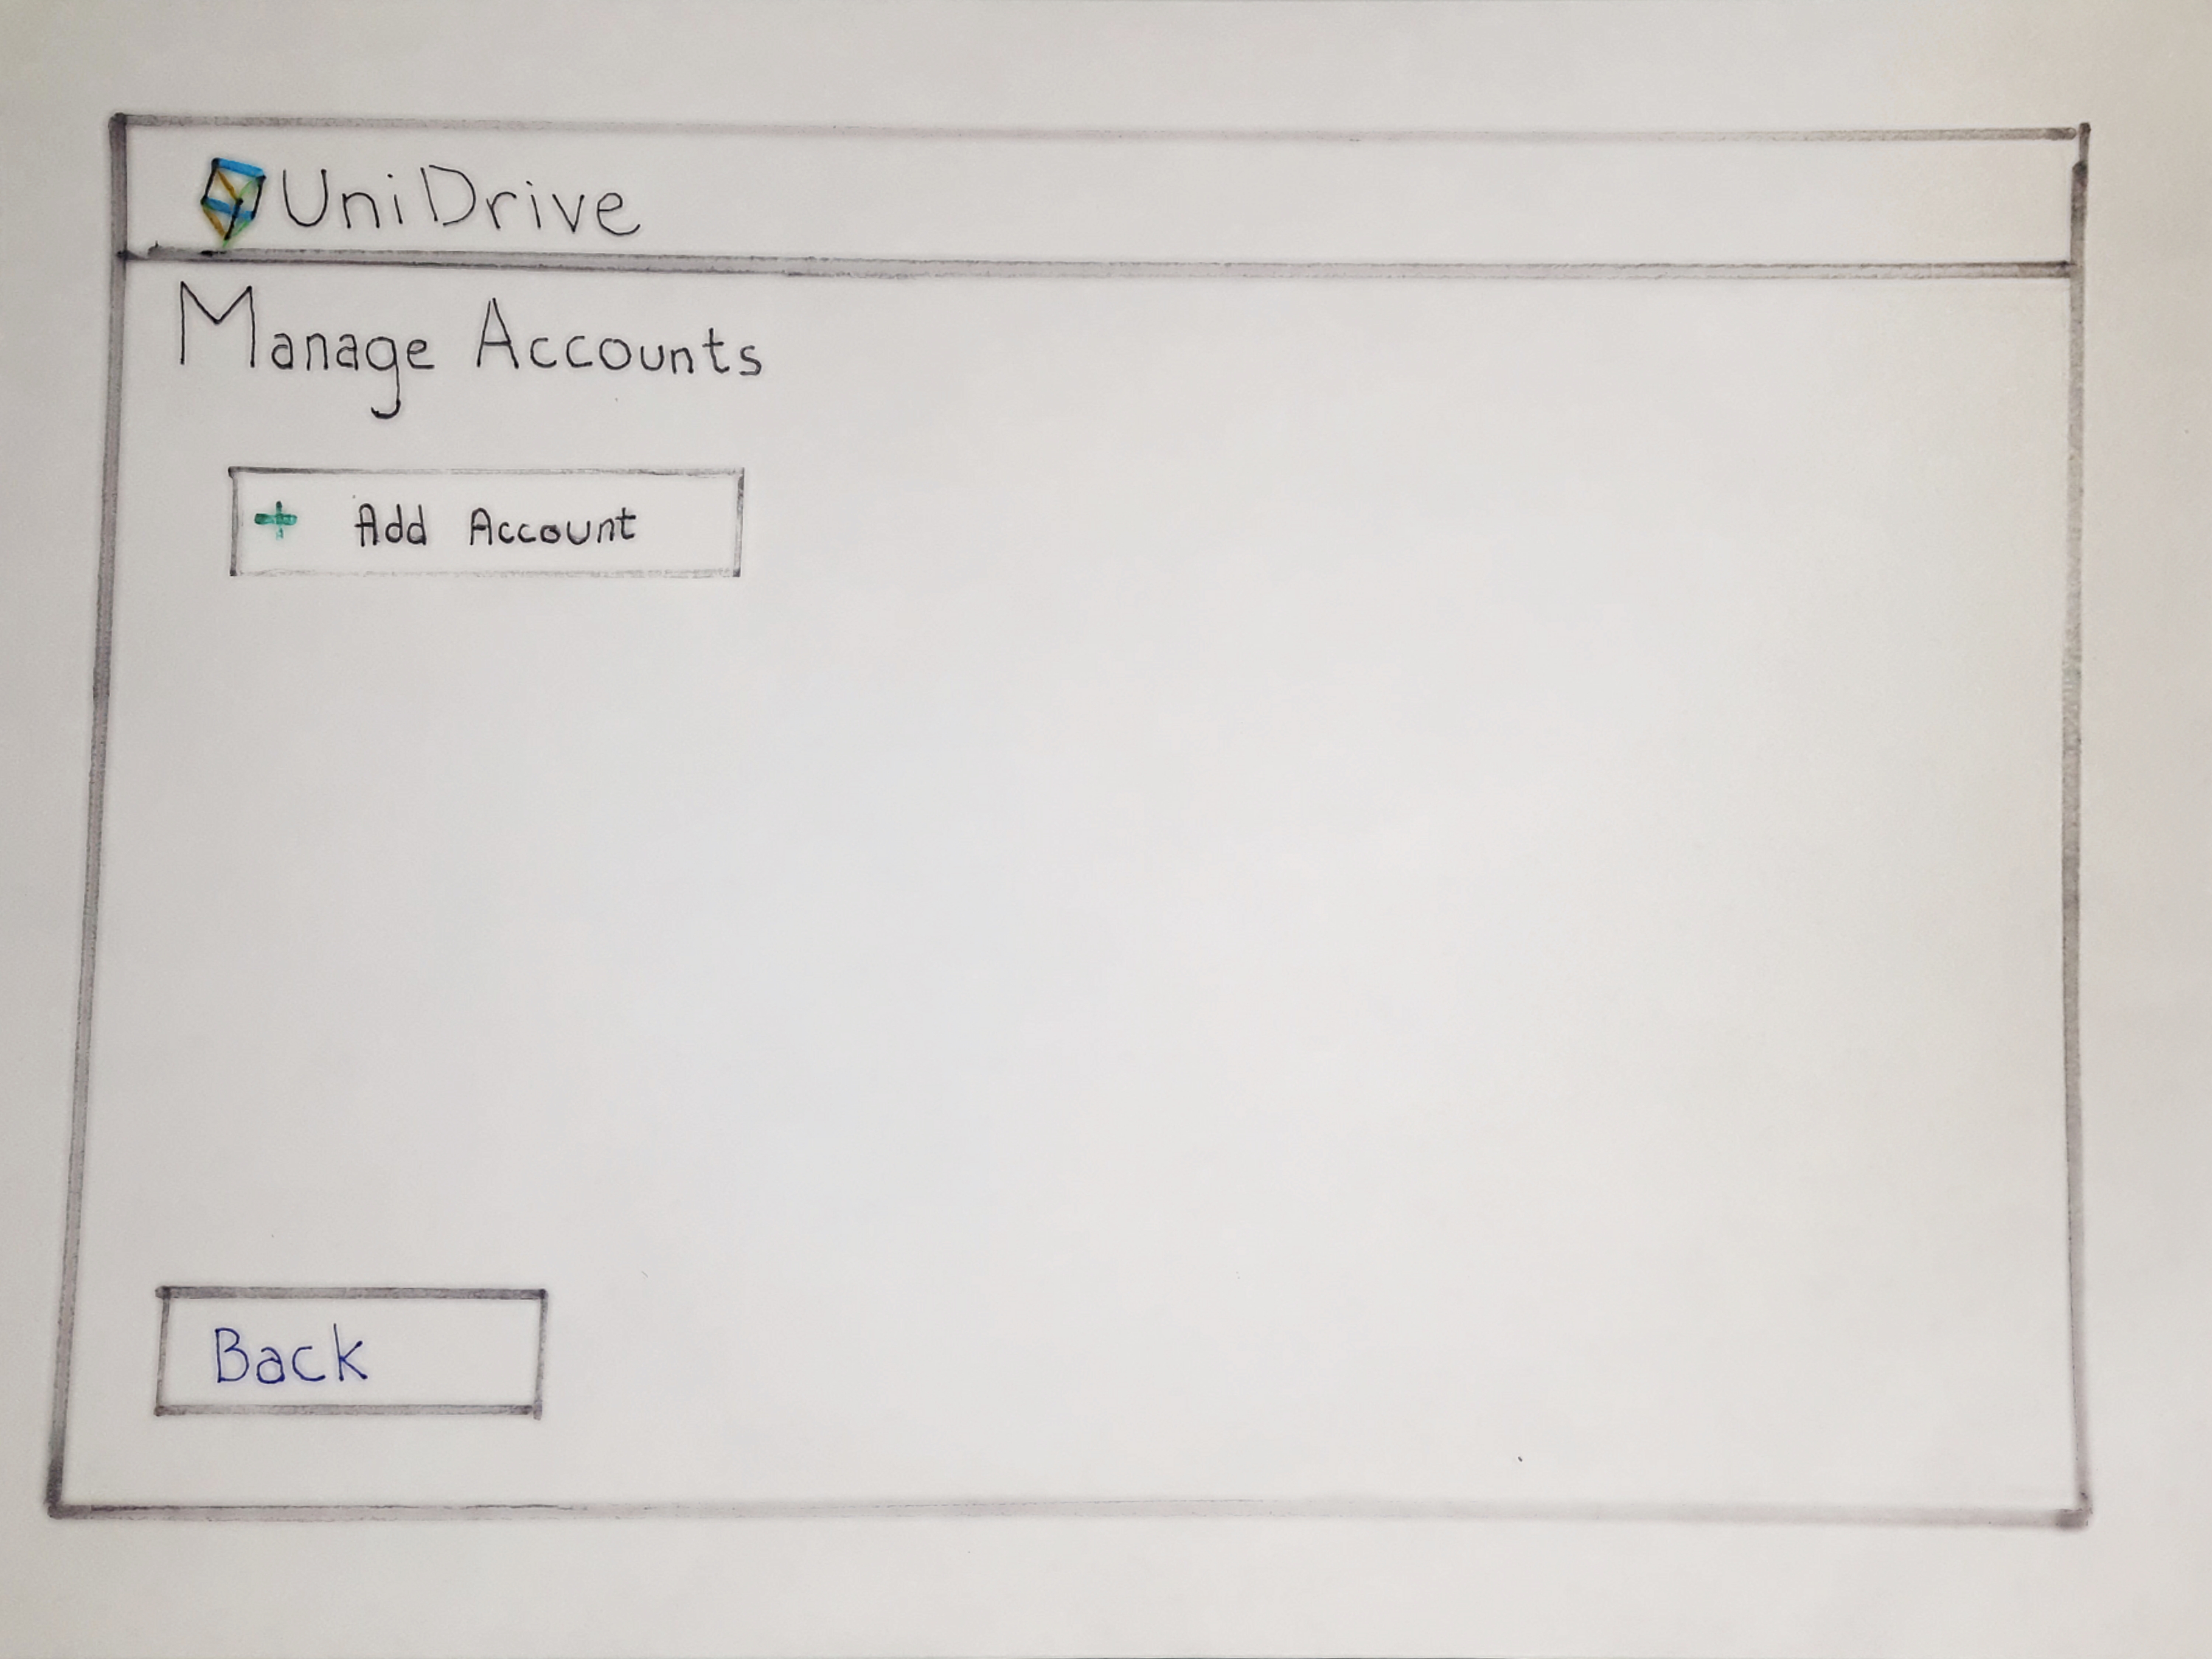 UniDrive
Manage Accounts
+ Add Account
Back